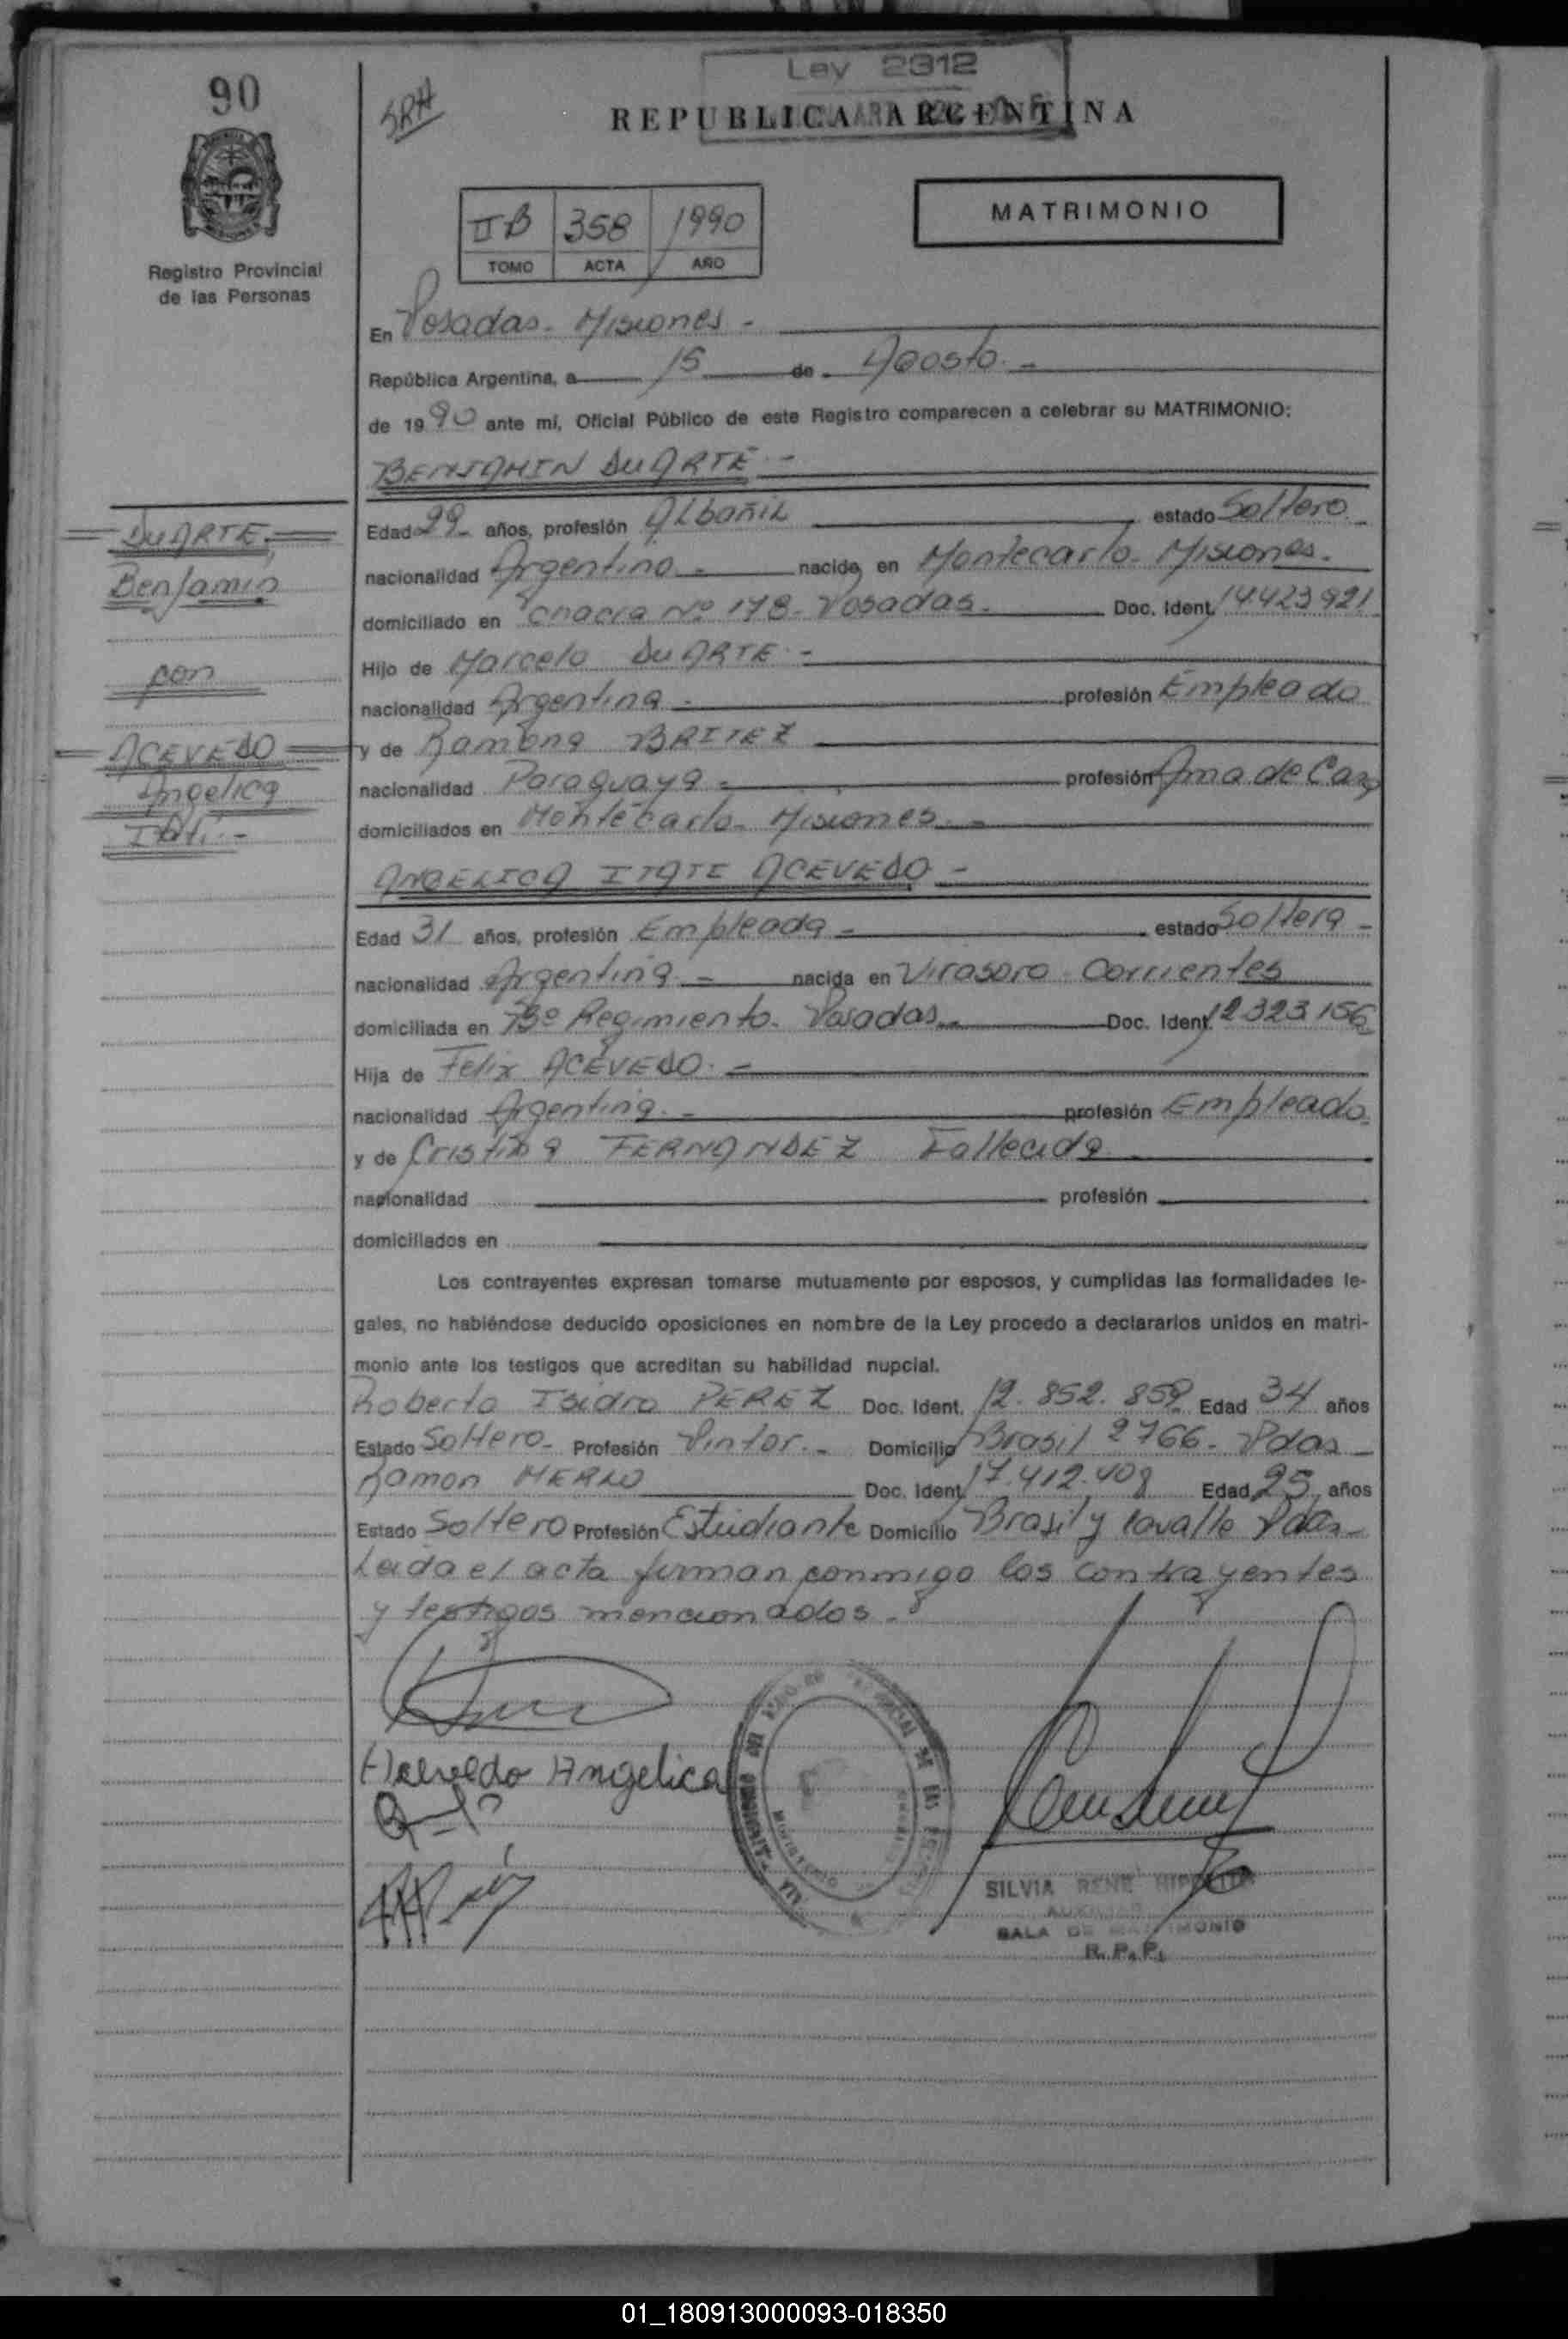 90
SRH
Ley 2312
REPUBLICA ARGENTINA
Registro Provincial
de las Personas
MATRIMONIO
II B 358 1990
TOMO ACTA AÑO
En Posadas - Misiones -
República Argentina, a 15 de Agosto. -
de 1990 ante mí, Oficial Público de este Registro comparecen a celebrar su MATRIMONIO:
BENJAMIN DUARTE. -
Edad 29 años, profesión Albañil estado Soltero. -
nacionalidad Argentino. - nacido en Montecarlo - Misiones.
domiciliado en Chacra Nº 178 - Posadas. Doc. Ident. 14423921
Hijo de Marcelo DUARTE. -
nacionalidad Argentina - profesión Empleado
y de Ramona BRITEZ
nacionalidad Paraguaya - profesión Ama de Casa
domiciliados en Montecarlo - Misiones. -
DUARTE,
Benjamin
con
ACEVEDO
Angelica
Itatí. -
ANGELICA ITATI ACEVEDO -
Edad 31 años, profesión Empleada - estado Soltera -
nacionalidad Argentina. - nacida en Virasoro - Corrientes
domiciliada en Regimiento - Posadas - Doc. Ident. 12323156
Hija de Felix ACEVEDO. -
nacionalidad Argentina. - profesión Empleado.
y de Cristina FERNANDEZ Fallecida
nacionalidad profesión
domiciliados en
Los contrayentes expresan tomarse mutuamente por esposos, y cumplidas las formalidades le-
gales, no habiéndose deducido oposiciones en nombre de la Ley procedo a declararlos unidos en matri-
monio ante los testigos que acreditan su habilidad nupcial.
Roberto Isidro PEREZ Doc. Ident. 12.852.859 Edad 34 años
Estado Soltero - Profesión Pintor. - Domicilio Brasil 2766 - Pdas -
Ramon MERLO Doc. Ident. 17.412.408 Edad 25 años
Estado Soltero Profesión Estudiante Domicilio Brasil y Lavalle Pdas -
Leida el acta firman conmigo los contrayentes
y testigos mencionados. -
Acevedo Angelica
SILVIA RENE
SALA DE MATRIMONIO
R. P. P.
01_180913000093-018350